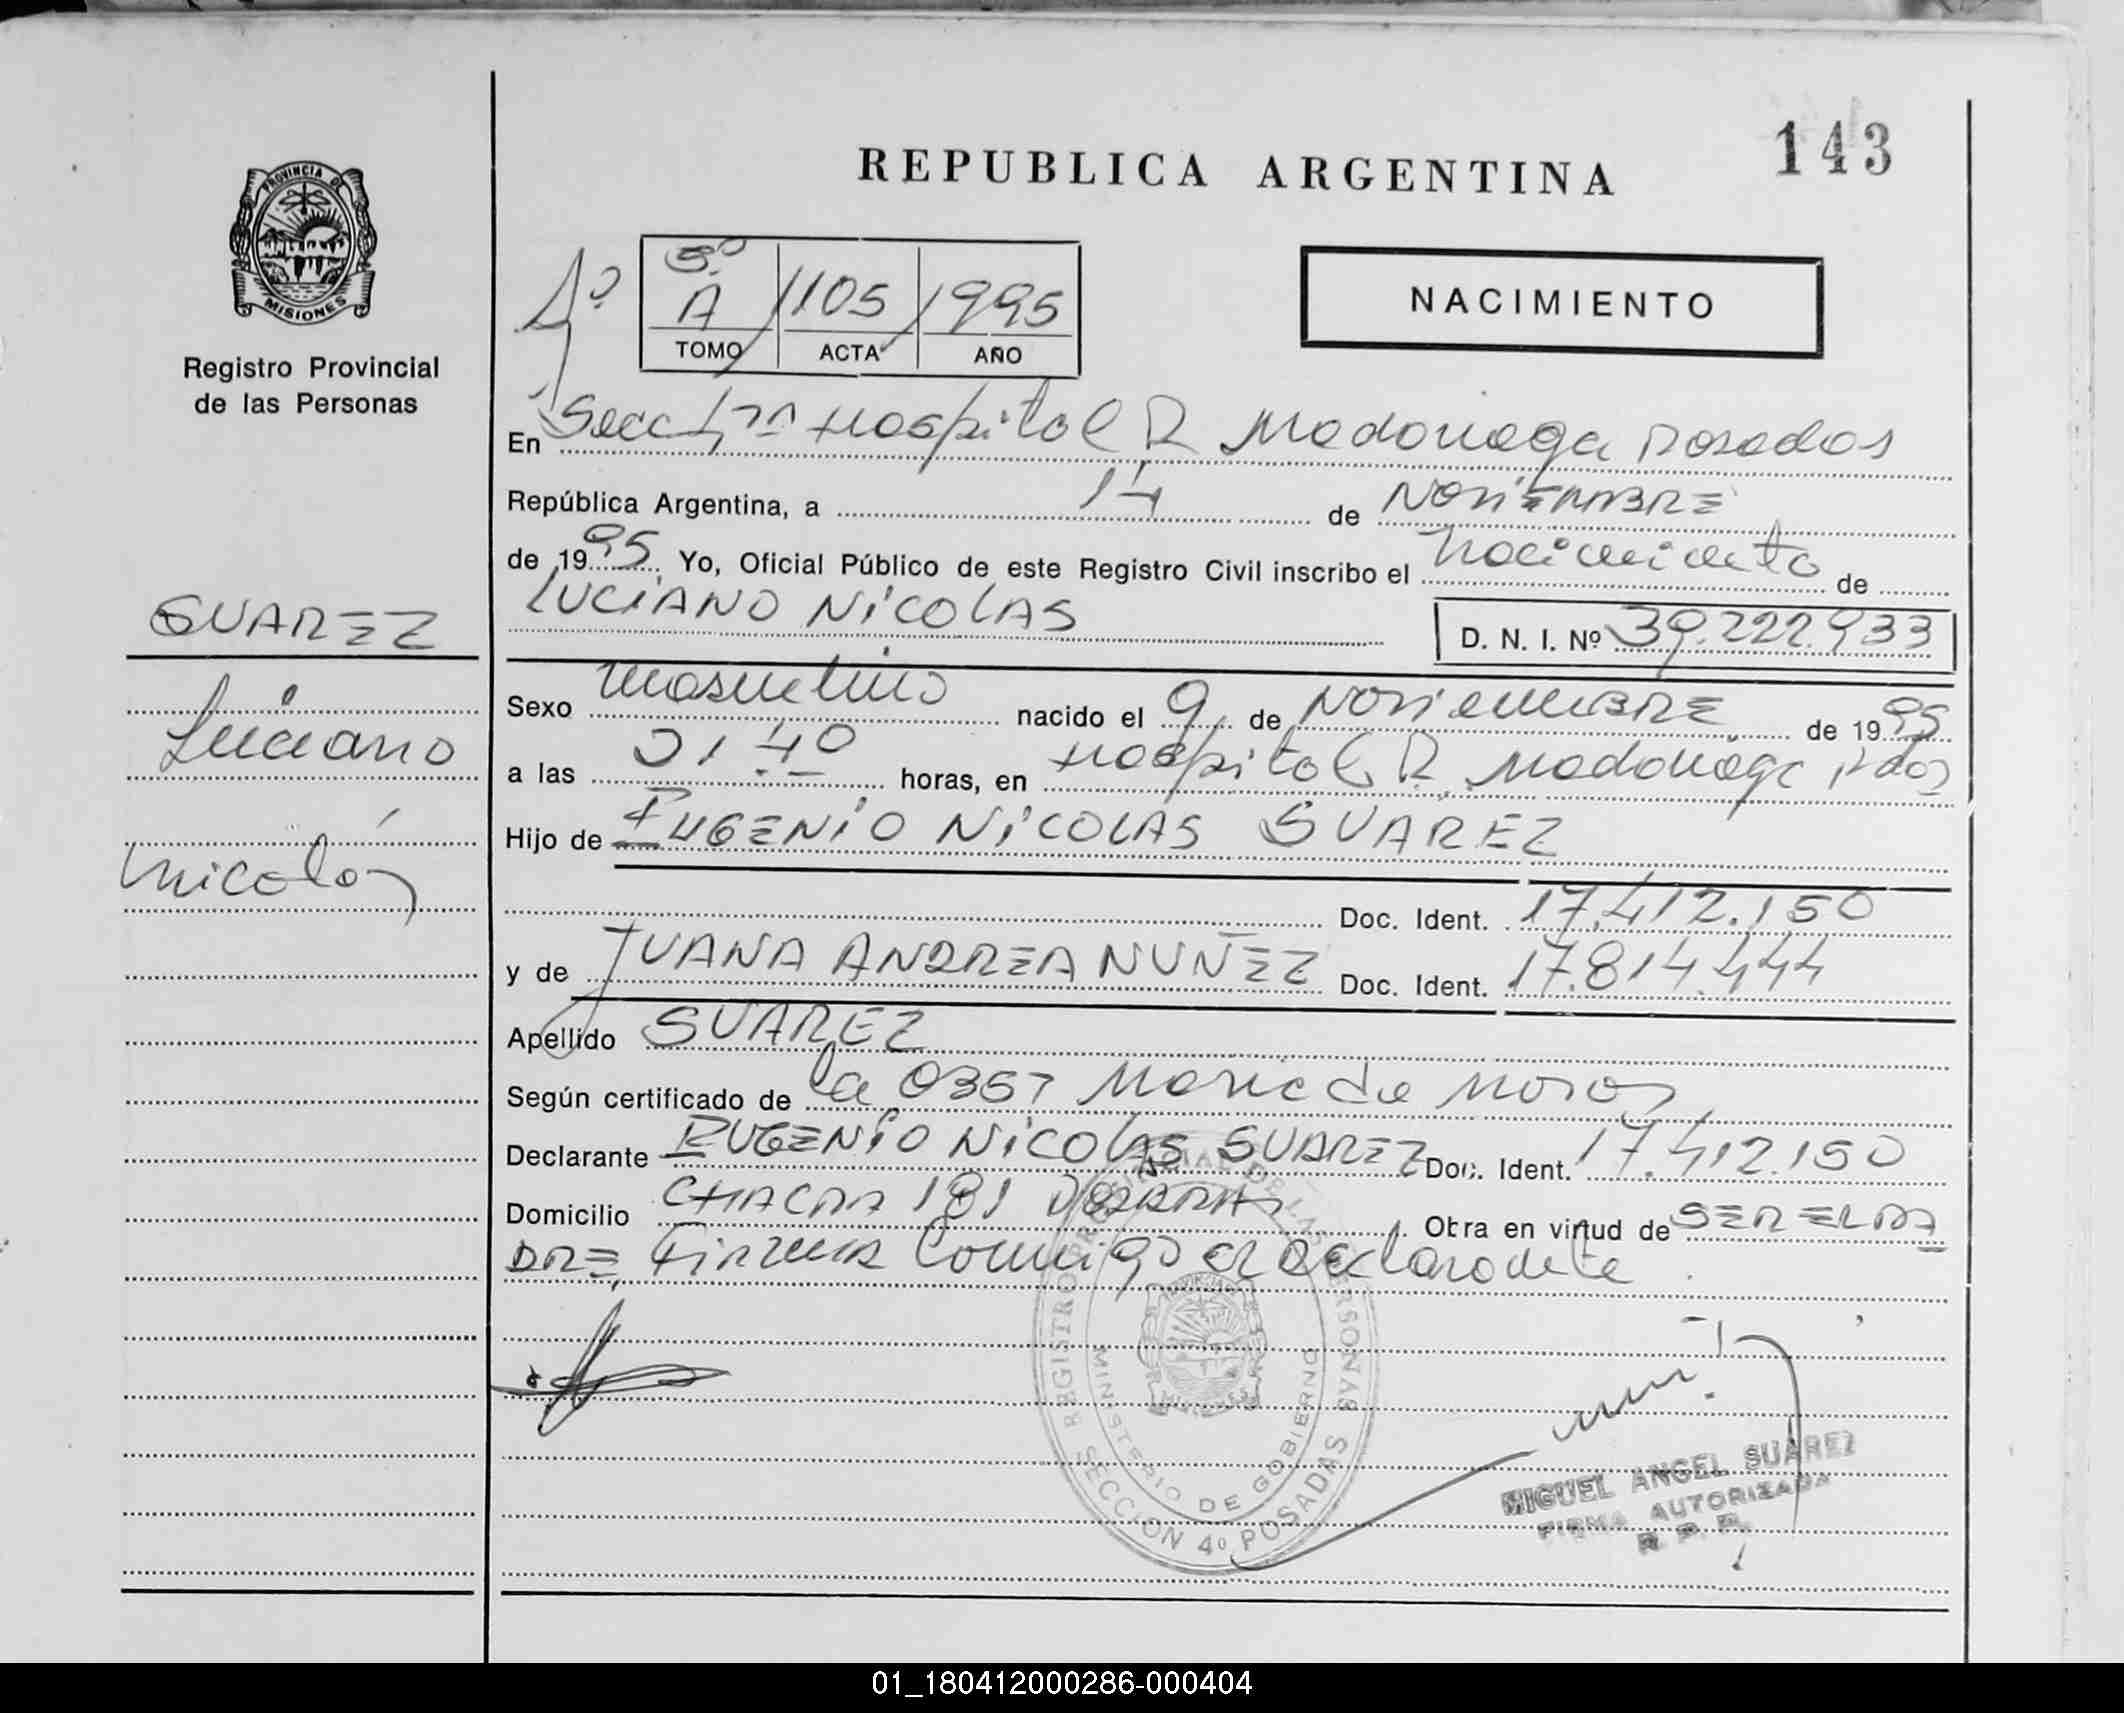 143
REPUBLICA ARGENTINA
PROVINCIA DE
MISIONES
Registro Provincial
de las Personas
4º
3º
A 1105 1995
TOMO ACTA AÑO
NACIMIENTO
En Secc 4ta Hospital R Madariaga Posadas
República Argentina, a 14 de NOVIEMBRE
de 1995 Yo, Oficial Público de este Registro Civil inscribo el nacimiento de
LUCIANO NICOLAS
D. N. I. Nº 39.222.933
SUAREZ
Luciano
Nicolás
Sexo masculino nacido el 9 de NOVIEMBRE de 1995
a las 01.40 horas, en Hospital R. Madariaga Pdas
Hijo de EUGENIO NICOLAS SUAREZ
Doc. Ident. 17.412.150
y de JUANA ANDREA NUÑEZ Doc. Ident. 17.814.444
Apellido SUAREZ
Según certificado de la 0357 Maria de
Declarante EUGENIO NICOLAS SUAREZ Doc. Ident. 17.412.150
Domicilio CHACRA 181 Obra en virtud de SER EL PA
DRE Firma Conmigo el Declarante
REGISTRO PROVINCIAL DE LAS PERSONAS
MINISTERIO DE GOBIERNO
SECCION 4º POSADAS
MIGUEL ANGEL SUAREZ
FIRMA AUTORIZADA
R. P. P.
01_180412000286-000404